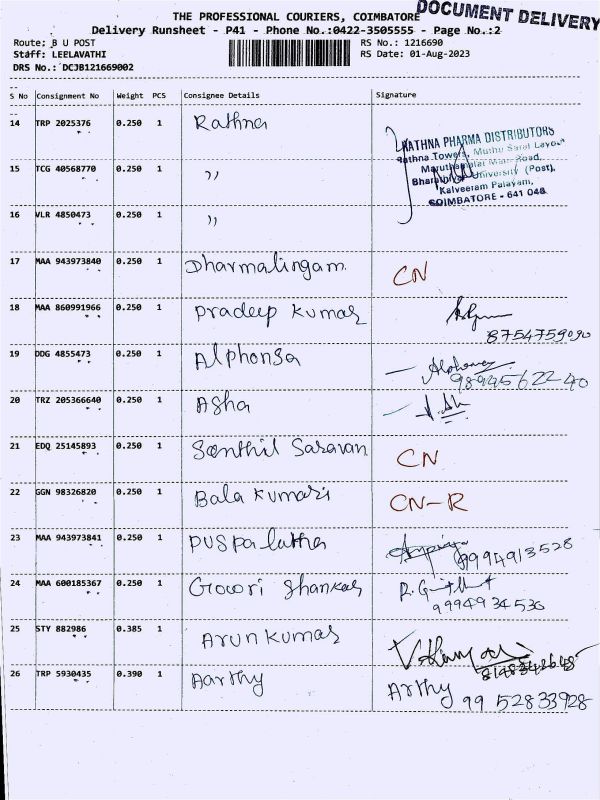 DOCUMENT DELIVERY
THE PROFESSIONAL COURIERS, COIMBATORE
Delivery Runsheet - P41 - Phone No.:0422-3505555 - Page No.:2
Route: B U POST RS No.: 1216690
Staff: LEELAVATHI RS Date: 01-Aug-2023
DRS No.: DCJB121669002
S No Consignment No Weight PCS Consignee Details Signature
14 TRP 2025376 0.250 1 Rathna
RATHNA PHARMA DISTRIBUTORS
Rathna Towers, Muthu Layout
Road,
University (Post),
Kalveeram Palayam,
COIMBATORE - 641 046
15 TCG 40568770 0.250 1 ,,
16 VLR 4850473 0.250 1 ,,
17 MAA 943973840 0.250 1 Dharmalingam CN
18 MAA 860991966 0.250 1 Pradeep Kumar
8754759090
19 DDG 4855473 0.250 1 Alphonsa
9894562240
20 TRZ 205366640 0.250 1 Asha
21 EDQ 25145893 0.250 1 Senthil Saravan CN
22 GGN 98326820 0.250 1 Bala Kumari CN-R
23 MAA 943973841 0.250 1 Puspalatha 9994913528
24 MAA 600185367 0.250 1 Gowri Shankar
9994934530
25 STY 882986 0.385 1 Arun Kumar
26 TRP 5930435 0.390 1 Aarthy Arthy 9952833928